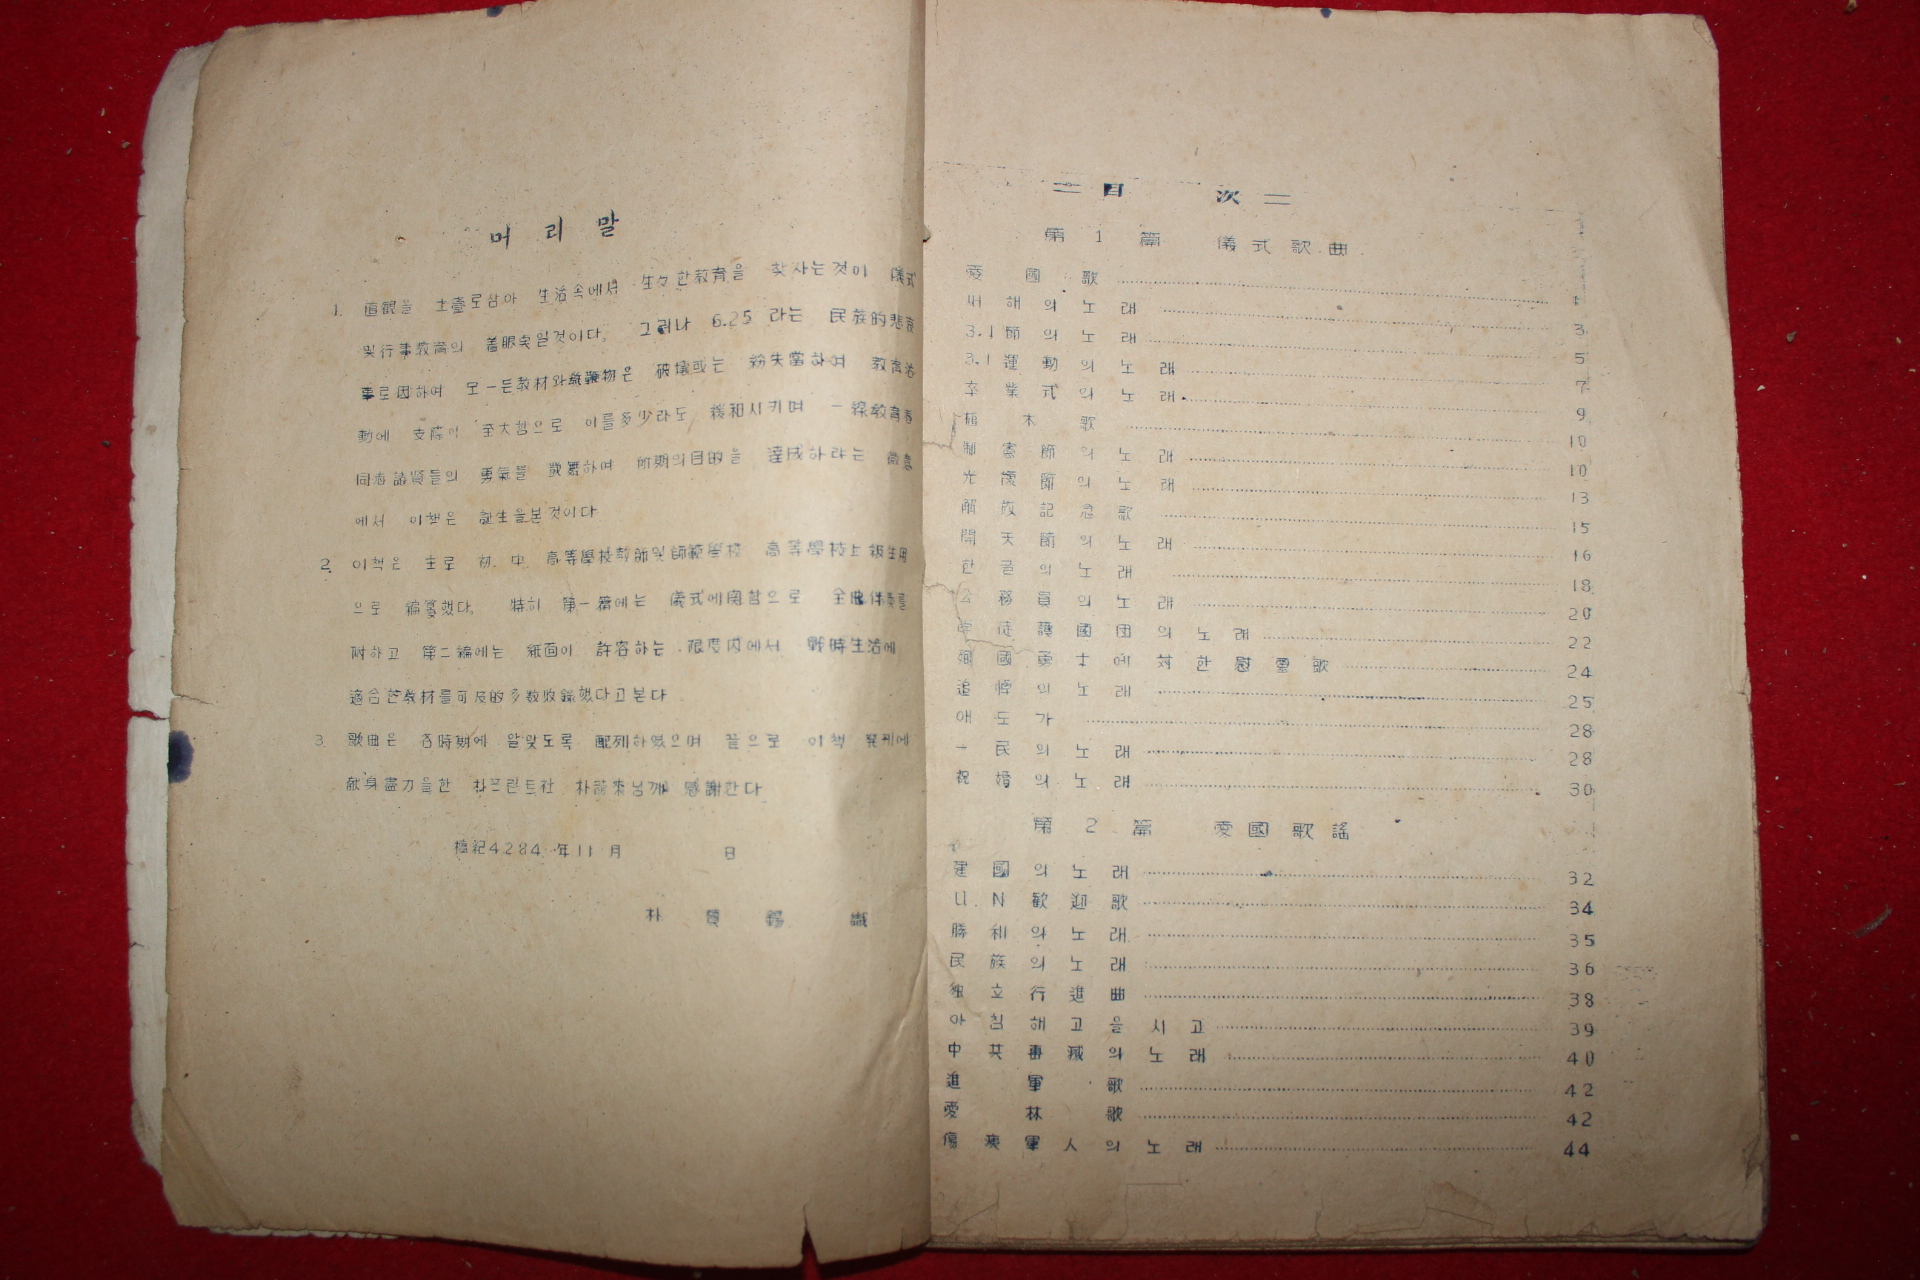 머리말
1. 直観을 土臺로삼아 生活속에서 生々한敎育을 찾자는것이 儀式
및行事敎育의 着眼奌일것이다. 그러나 6.25 라는 民族的悲哀
事로因하여 모ー든敎材와 은 破壞或는 紛失當하여 敎育活
動에 支障이 至大함으로 이를多少라도 緩和시키며 一線敎育者
同志諸賢들의 勇氣를 鼓舞하여 所期의目的을 達成하라는
에서 이책은 誕生을본것이다
2. 이책은 主로 初.中 高等學校敎師및師範學校 高等學校上級生用
으로 編纂했다. 特히 第一篇에는 儀式에関함으로 全曲伴奏를
附하고 第二編에는 紙面이 許容하는 限度内에서 戰時生活에
適合한敎材를可及的多数收錄했다고본다
3. 歌曲은 各時期에 알맞도록 配列하였으며 끝으로 이책 発刊에
献身盡力을한 朴프린트社 朴 님께 感謝한다
檀紀4284年11月 日
朴 錫 識
=目 次=
第1篇 儀式歌曲
愛國歌 1
새해의노래 3
3.1節의노래 5
3.1運動의노래 7
卒業式의노래 9
植木歌 10
制憲節의노래 10
光復節의노래 13
解放記念歌 15
開天節의노래 16
한글의노래 18
公務員의노래 20
学徒護國団의노래 22
殉國勇士에対한慰靈歌 24
追悼의노래 25
애도가 28
一民의노래 28
祝婚의노래 30
第2篇 愛國歌謠
建國의노래 32
U.N歡迎歌 34
勝利의노래 35
民族의노래 36
独立行進曲 38
아침해고을시고 39
中共再滅의노래 40
進軍歌 42
愛林歌 42
傷痍軍人의노래 44